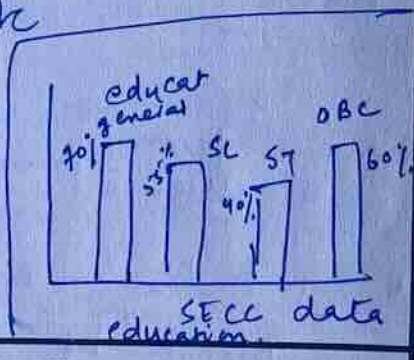 educat
general
OBC
70%
55%
SC
ST
40%
60%
SECC data
education